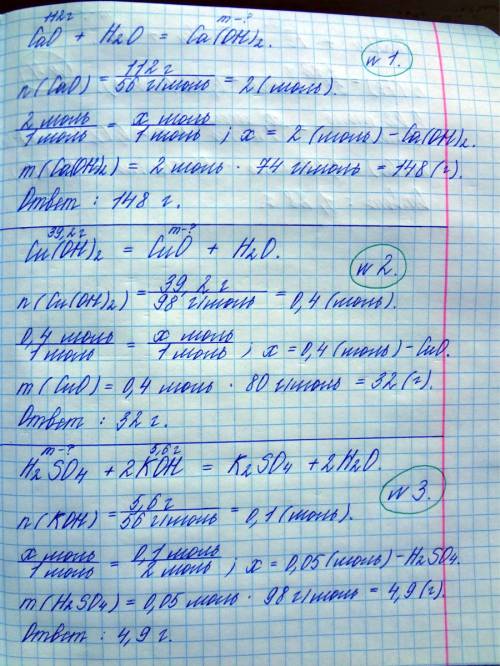 112г m-?
CaO + H2O = Ca(OH)2.
№1.
n(CaO) = 112г / 56 г/моль = 2 (моль).
2 моль / 1 моль = x моль / 1 моль ; x = 2 (моль) – Ca(OH)2.
m(Ca(OH)2) = 2 моль · 74 г/моль = 148 (г).
Ответ : 148 г.
39,2г m-?
Cu(OH)2 = CuO + H2O.
№2.
n(Cu(OH)2) = 39,2 г / 98 г/моль = 0,4 (моль).
0,4 моль / 1 моль = x моль / 1 моль ; x = 0,4 (моль) – CuO.
m(CuO) = 0,4 моль · 80 г/моль = 32 (г).
Ответ : 32 г.
m-? 5,6г
H2SO4 + 2KOH = K2SO4 + 2H2O.
№3.
n(KOH) = 5,6 г / 56 г/моль = 0,1 (моль).
x моль / 1 моль = 0,1 моль / 2 моль ; x = 0,05 (моль) – H2SO4.
m(H2SO4) = 0,05 моль · 98 г/моль = 4,9 (г).
Ответ : 4,9 г.